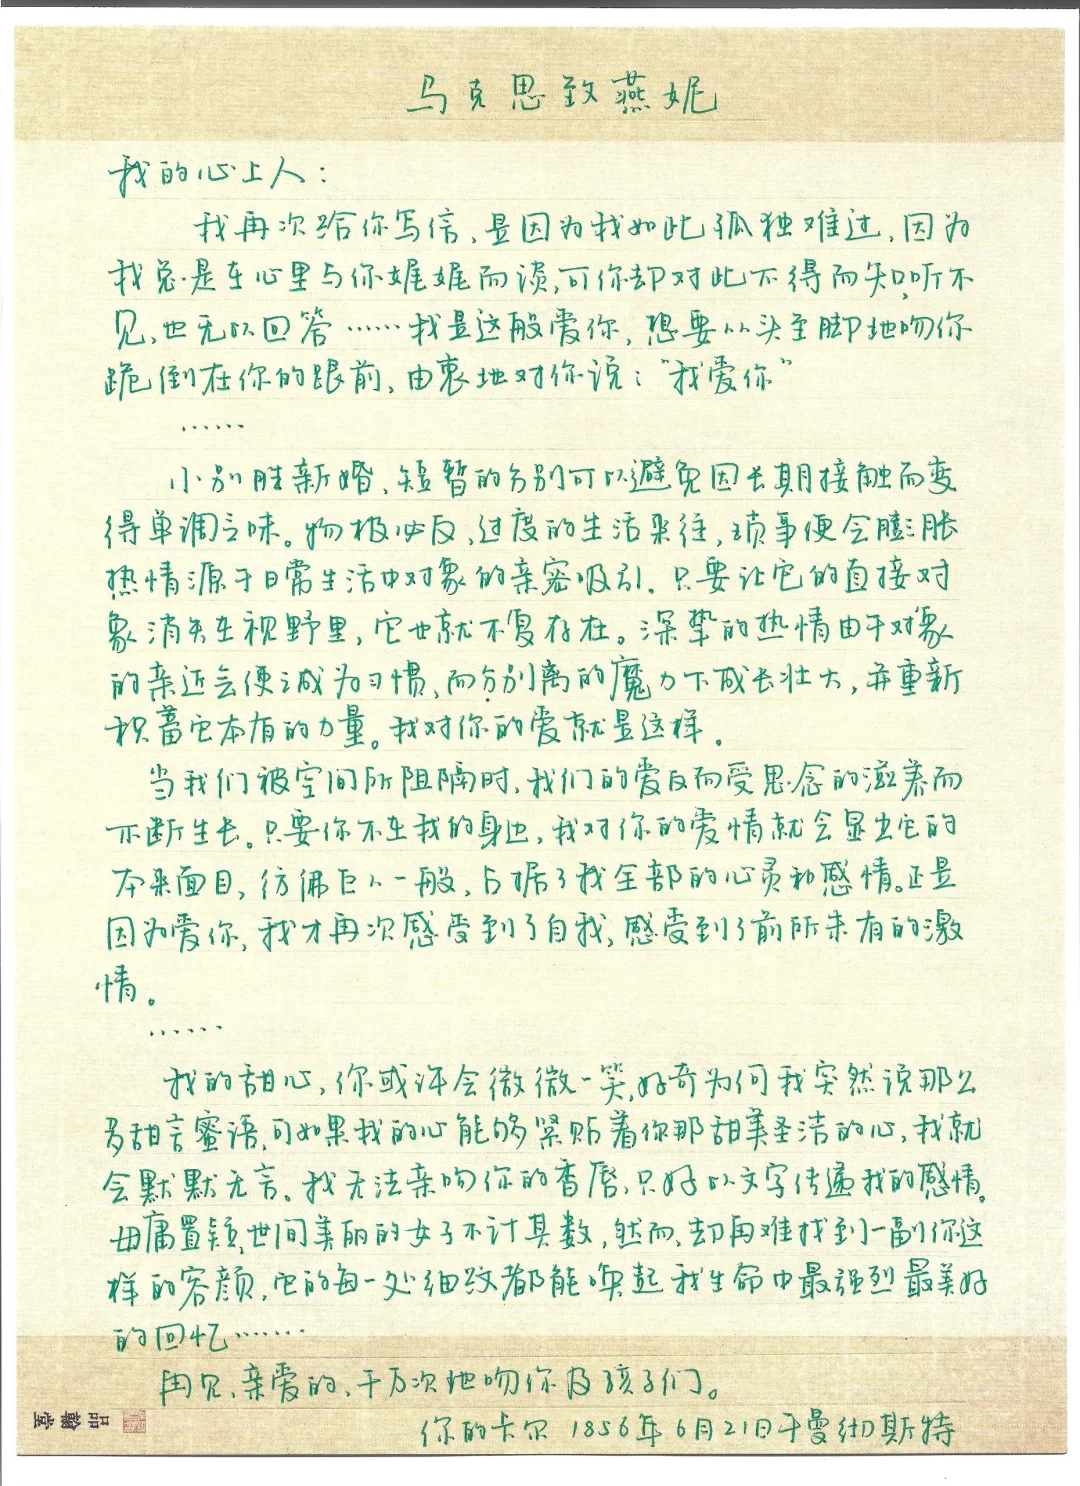 马克思致燕妮
我的心上人：
我再次给你写信，是因为我如此孤独难过，因为
我总是在心里与你娓娓而谈，可你却对此不得而知，听不
见，也无以回答……我是这般爱你，想要从头至脚地吻你
跪倒在你的跟前，由衷地对你说："我爱你"
……
小别胜新婚，短暂的分别可以避免因长期接触而变
得单调乏味。物极必反，过度的生活来往，琐事便会膨胀
热情源于日常生活中对象的亲密吸引。只要让它的直接对
象消失在视野里，它也就不复存在。深挚的热情由于对象
的亲近会使之减为习惯，而分别离的魔力下成长壮大，并重新
积蓄它本有的力量。我对你的爱就是这样。
当我们被空间所阻隔时，我们的爱反而受思念的滋养而
不断生长。只要你不在我的身边，我对你的爱情就会显出它的
本来面目，仿佛巨人一般，占据了我全部的心灵和感情。正是
因为爱你，我才再次感受到了自我，感受到了前所未有的激
情。
……
我的甜心，你或许会微微一笑，好奇为何我突然说那么
多甜言蜜语，可如果我的心能够紧贴着你那甜美圣洁的心，我就
会默默无言。我无法亲吻你的香唇，只好以文字传递我的感情。
毋庸置疑，世间美丽的女子不计其数，然而，却再难找到一副你这
样的容颜，它的每一处细纹都能唤起我生命中最强烈最美好
的回忆……
再见，亲爱的，千万次地吻你及孩子们。
你的卡尔 1856年6月21日于曼彻斯特
品翰堂